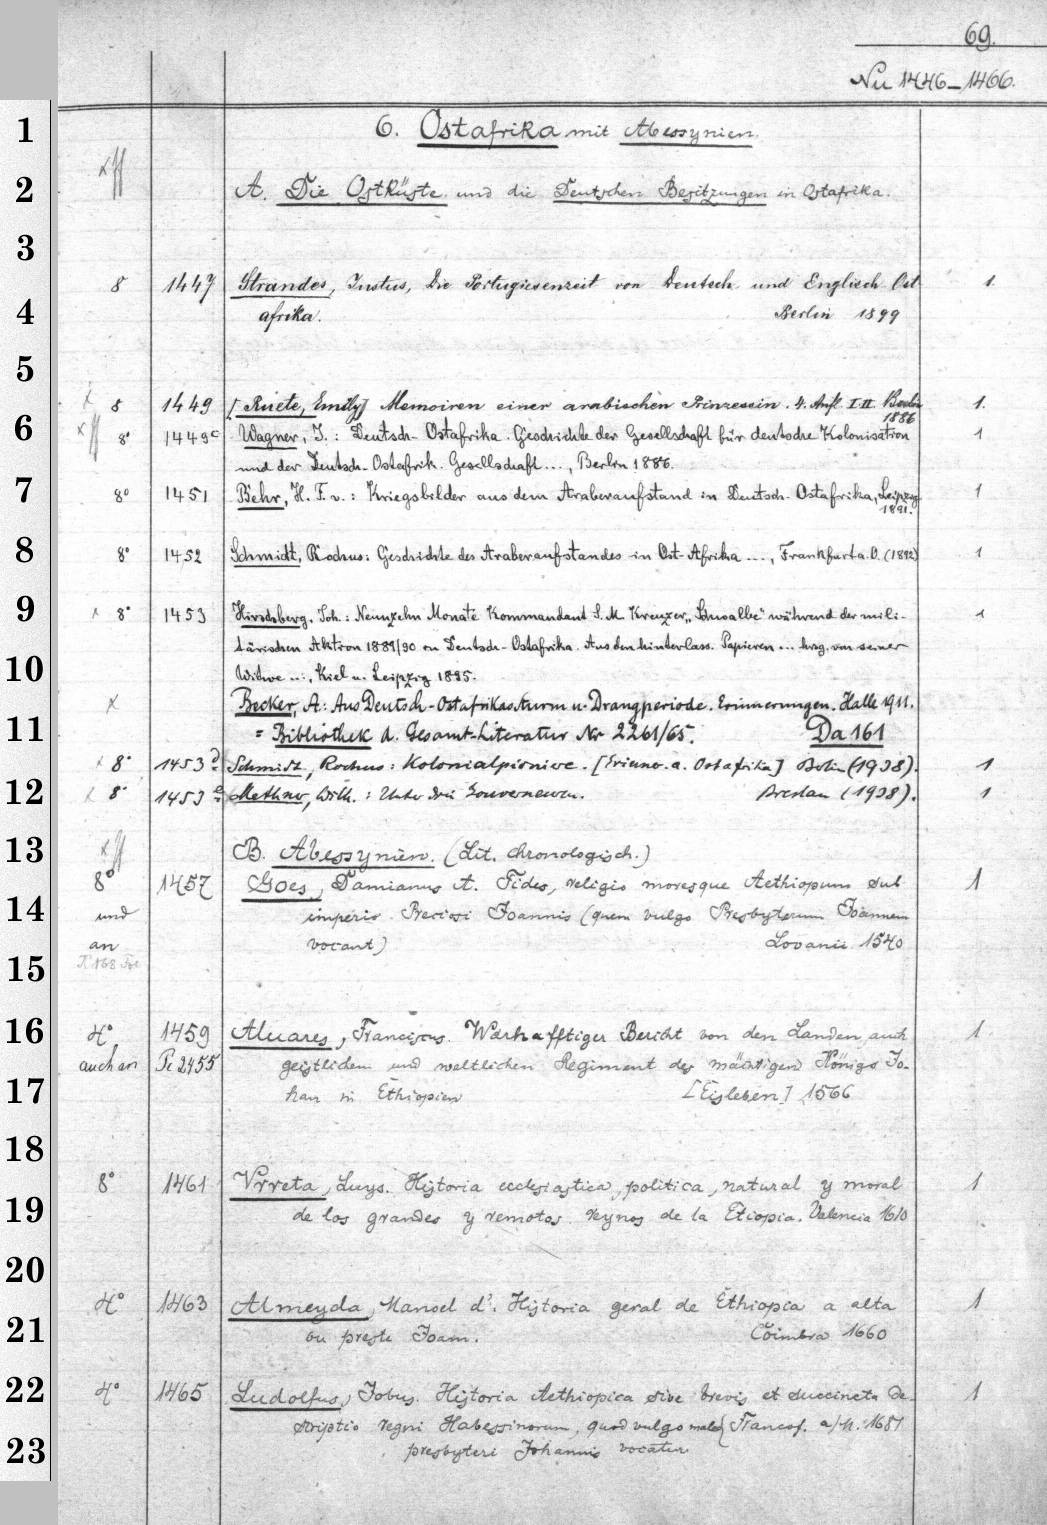 69.
Nu 1446–1466.
1 6. Ostafrika mit Abessynien.
2 A. Die Ostküste und die Deutschen Besitzungen in Ostafrika.
3
8 1447 Strandes, Justus, Die Portugiesenzeit von Deutsch und Englisch Ost 1.
4 afrika. Berlin 1899
5
8 1449 [Ruete, Emily] Memoiren einer arabischen Prinzessin. 4. Aufl. I-II Berlin 1.
1886
6 8° 1449c Wagner, J.: Deutsch-Ostafrika. Geschichte der Gesellschaft für deutsche Kolonisation 1
und der Deutsch-Ostafrik. Gesellschaft ..., Berlin 1886.
7 8° 1451 Behr, H. F. v.: Kriegsbilder aus dem Araberaufstand in Deutsch-Ostafrika, Leipzig 1
1891.
8 8° 1452 Schmidt, Rochus: Geschichte des Araberaufstandes in Ost-Afrika ..., Frankfurt a. O. (1892) 1
9 x 8° 1453 Hirschberg, Joh.: Neunzehn Monate Kommandant S. M. Kreuzer „Schwalbe" während der mili- 1
tärischen Aktion 1889/90 an Deutsch-Ostafrika. Aus den hinterlass. Papieren ... hrsg. von seiner
10 Witwe ..., Kiel u. Leipzig 1895.
x Becker, A: Aus Deutsch-Ostafrikas Sturm u. Drangperiode. Erinnerungen. Halle 1911.
11 = Bibliothek d. Gesamt-Literatur Nr 2261/65. Da 161
x 8° 1453d Schmidt, Rochus: Kolonialpioniere. [Erinn. a. Ostafrika] Berlin (1938). 1
12 x 8° 1453e Methner, Wilh.: Unter drei Gouverneuren. Breslau (1938). 1
13 B. Abessynien. (Lit. chronologisch.)
8° 1457 Goes, Damianus A. Fides, religio moresque Aethiopum sub 1
14 und imperio Preciosi Joannis (quem vulgo Presbyterum Joannem
an vocant) Lovanii 1540
15
16 4° 1459 Aluares, Franciscus. Warhafftiger Bericht von den Landen, auch 1
auch an Pc 2455 geistlichem und weltlichen Regiment des mächtigen Königs Jo-
17 han in Ethiopien [Eisleben] 1566
18
8° 1461 Vrreta, Luys. Historia ecclesiastica, politica, natural y moral 1
19 de los grandes y remotos reynos de la Etiopia. Valencia 1610
20
4° 1463 Almeyda, Manoel d'. Historia geral de Ethiopia a alta 1
21 ou preste Joam. Coimbra 1660
22 4° 1465 Ludolfus, Jobus. Historia Aethiopica sive brevis et succincta de- 1
scriptio regni Habessinorum, quod vulgo male { Francof. a/M. 1681
23 presbyteri Johannis vocatur